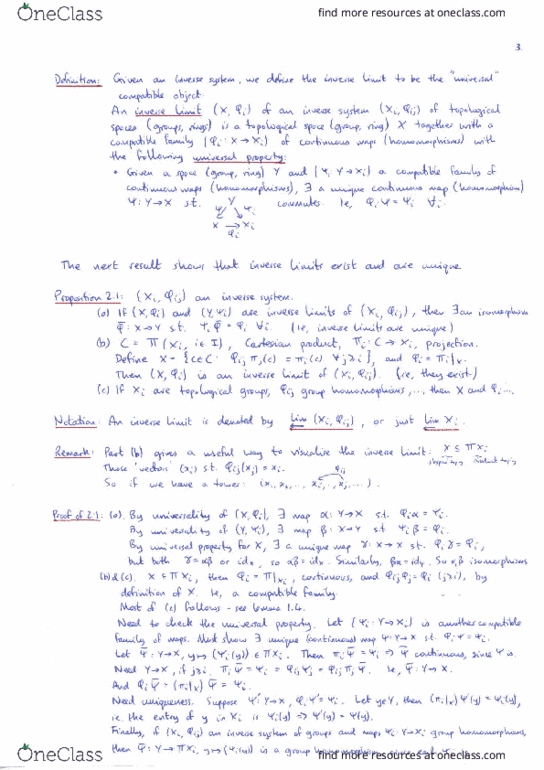 OneClass
find more resources at oneclass.com
3.
Definition: Given an inverse system, we define the inverse limit to be the "universal"
compatible object.
An inverse limit (X, φi) of an inverse system (Xi, φij) of topological
spaces (groups, rings) is a topological space (group, ring) X together with a
compatible family {φi: X → Xi} of continuous maps (homomorphisms) with
the following universal property:
• Given a space (group, ring) Y and {Ψi: Y → Xi} a compatible family of
continuous maps (homomorphisms), ∃ a unique continuous map (homomorphism)
Ψ: Y → X s.t. commutes. Ie, φiΨ = Ψi ∀i.
Y
Ψ Ψi
X → Xi
φi
The next result shows that inverse limits exist and are unique.
Proposition 2.1: (Xi, φij) an inverse system.
(a) If (X, φi) and (Y, Ψi) are inverse limits of (Xi, φij), then ∃ an isomorphism
Φ̄: X → Y s.t. Ψi Φ̄ = φi ∀i (ie, inverse limits are unique)
(b) C = Π(Xi, i∈I), Cartesian product, πi: C → Xi projection.
Define X = {c∈C: φij πj(c) = πi(c) ∀j≥i}, and φi = πi|x.
Then (X, φi) is an inverse limit of (Xi, φij). (ie, they exist)
(c) If Xi are topological groups, φij group homomorphisms, ..., then X and φi ....
Notation: An inverse limit is denoted by lim (Xi, φij), or just lim Xi.
Remark: Part (b) gives a useful way to visualise the inverse limit: X ⊆ ΠXi
Those 'vectors' (xi) s.t. φij(xj) = xi.
φij
So if we have a tower: (x1, x2, ..., xi, ..., xj, ...).
Proof of 2.1: (a). By universality of (X, φi), ∃ map α: Y → X s.t. φiα = Ψi.
By universality of (Y, Ψi), ∃ map β: X → Y s.t. Ψiβ = φi.
By universal property for X, ∃ a unique map γ: X → X s.t. φiγ = φi,
but both γ = αβ or idx, so αβ = idx. Similarly, βα = idY. So α, β isomorphisms
(b)&(c). X ⊆ ΠXi, then φi = πi|x, continuous, and φijφj = φi (j≥i), by
definition of X. Ie, a compatible family.
Most of (c) follows - see lemma 1.4.
Need to check the universal property. Let {Ψi: Y → Xi} is another compatible
family of maps. Must show ∃ unique (continuous) map Ψ: Y → X s.t. φiΨ = Ψi.
Let Ψ̄: Y → X, y ↦ (Ψi(y)) ∈ ΠXi. Then πiΨ̄ = Ψi ⇒ Ψ̄ continuous, since Ψi is.
Need Y → X, if j≥i. πiΨ̄ = Ψi = φijΨj = φijπjΨ̄. Ie, Ψ̄: Y → X.
And φiΨ̄ = (πi|x)Ψ̄ = Ψi.
Need uniqueness. Suppose Ψ': Y → X, φiΨ' = Ψi. Let y∈Y, then (πi|x)Ψ'(y) = Ψi(y),
ie. the entry of y in Xi is Ψi(y) ⇒ Ψ'(y) = Ψ(y).
Finally, if (Xi, φij) an inverse system of groups and maps Ψi: Y → Xi group homomorphisms,
then Ψ̄: Y → ΠXi, y ↦ (Ψi(y)) is a group
OneClass
find more resources at oneclass.com